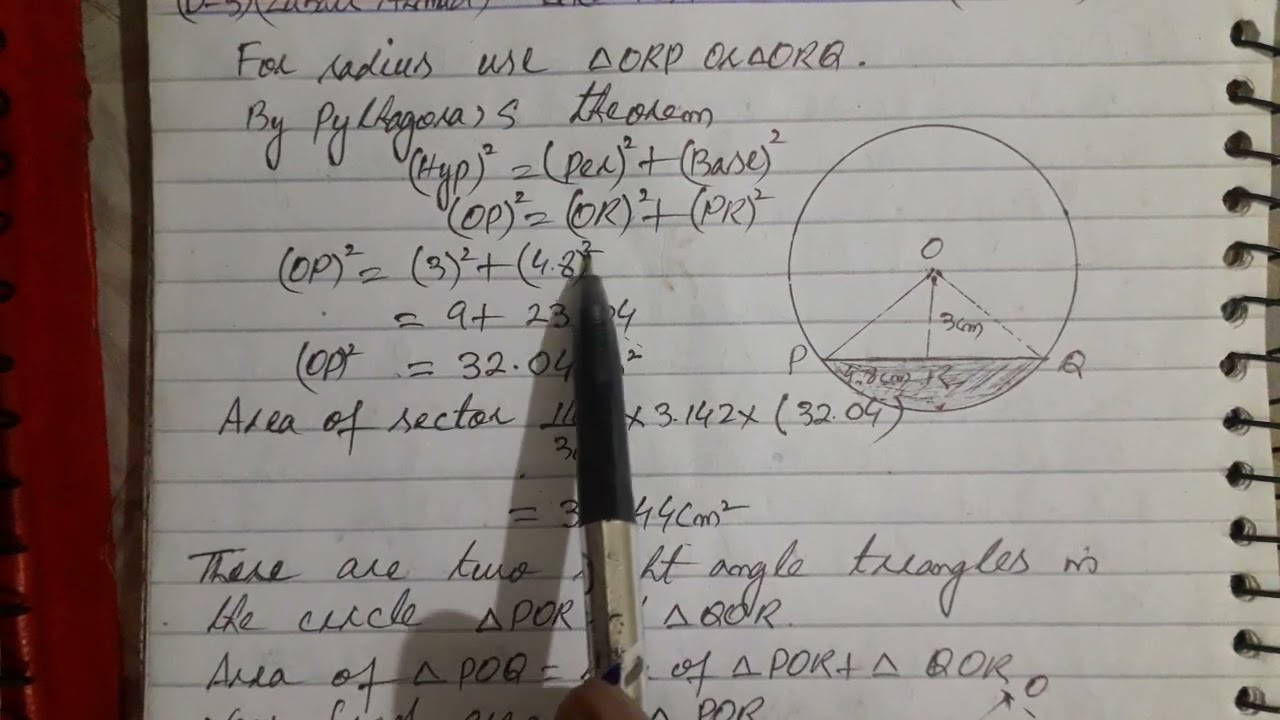 For radius use △ORP Or △ORQ.
By Pythagora's theorem
(Hyp)² = (Per)² + (Base)²
(OP)² = (OR)² + (PR)²
(OP)² = (3)² + (4.8)²
= 9 + 23.04
(OP)² = 32.04 ²
Area of sector × 3.142 × (32.04)
= 3 44 Cm²
There are two angle triangles in
the circle △POR △QOR.
Area of △POQ = of △POR + △QOR
△POR
O
3cm
P
4.8cm R
Q
O